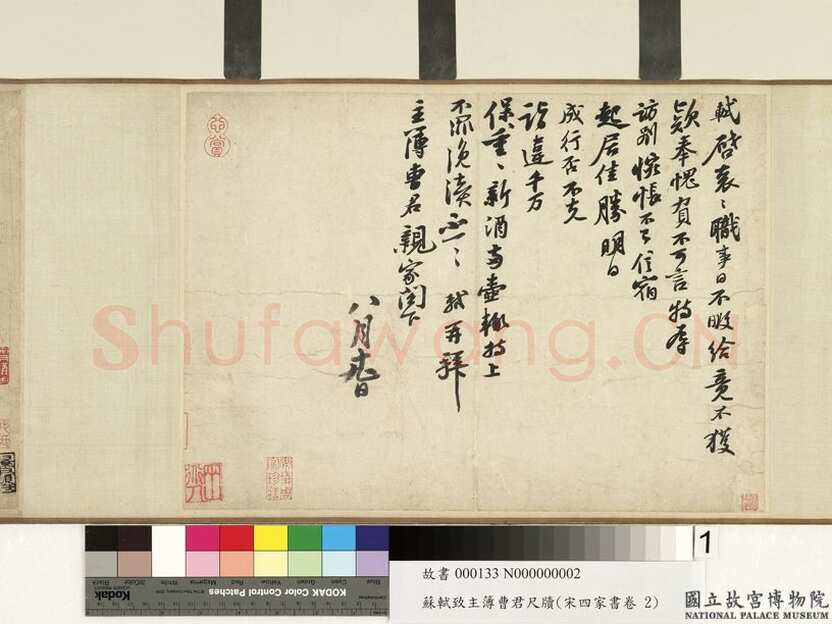 軾啓衰〻職事日不暇給竟不獲
款奉愧負不可言特辱
訪別惋悵不已信宿
起居佳勝明日
成行否不克
詣違千万
保重〻新酒兩壺輒持上
不罪浼瀆不一〻軾再拜
主簿曹君親家閣下
八月十九日
Shufawang.CN
Kodak
KODAK Color Control Patches
Blue
Cyan
Green
Yellow
Red
Magenta
White
3/Color
Black
1
故書 000133 N000000002
蘇軾致主簿曹君尺牘(宋四家書卷 2)
國立故宮博物院
NATIONAL PALACE MUSEUM